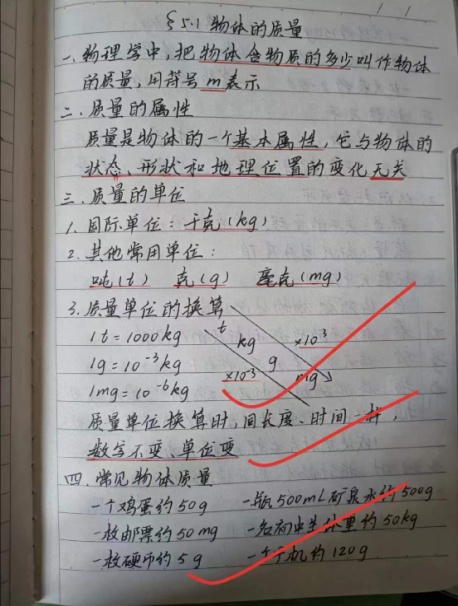 §5.1 物体的质量
一、物理学中,把物体含物质的多少叫作物体
的质量,用符号 m 表示
二、质量的属性
质量是物体的一个基本属性,它与物体的
状态、形状和地理位置的变化无关
三、质量的单位
1. 国际单位:千克(kg)
2. 其他常用单位:
吨(t) 克(g) 毫克(mg)
3. 质量单位的换算
1t=1000kg
1g=10⁻³kg
1mg=10⁻⁶kg
t kg g mg
×10³
×10⁻³
质量单位换算时,同长度、时间一样,
数字不变、单位变
四、常见物体质量
一个鸡蛋约50g 一瓶500mL矿泉水约500g
一枚邮票约50mg 一名初中生体重约50kg
一枚硬币约5g 一个手机约120g